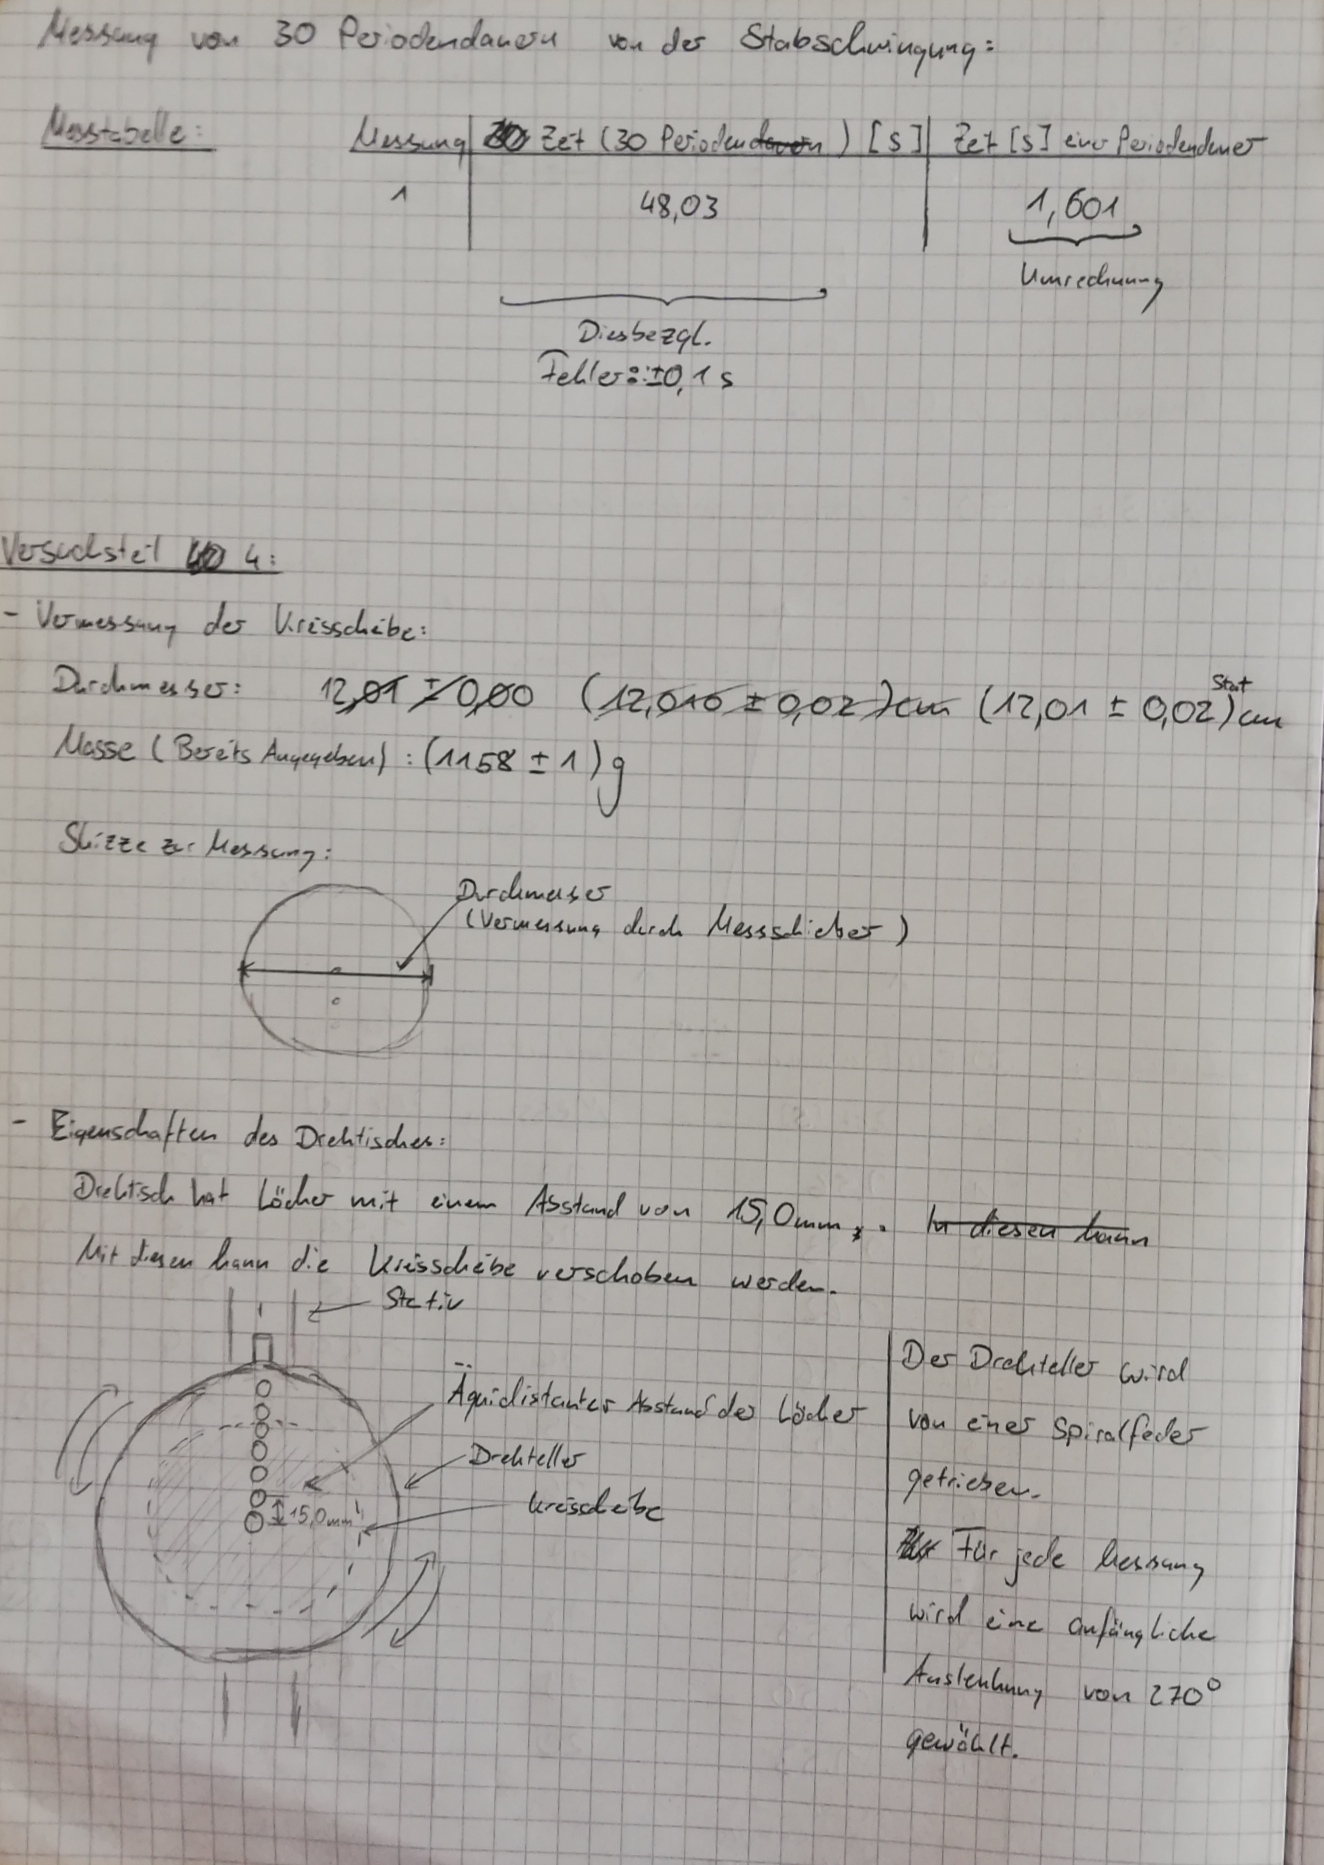 Messung von 30 Periodendauern von der Stabschwingung:
Messtabelle:
Messung Zeit (30 Perioden dauern ) [s] Zeit [s] einer Periodendauer
1 48,03 1,601
Umrechnung
Diesbezgl.
Fehler: ±0,1 s
Versuchsteil 4:
- Vermessung der Kreisscheibe:
Durchmesser: 12,01 ± 0,00 (12,010 ± 0,02) cm (12,01 ± 0,02 Stat) cm
Masse (Bereits Angegeben) : (1158 ± 1) g
Skizze zur Messung:
Durchmesser
(Vermessung durch Messschieber)
- Eigenschaften des Drehtisches:
Drehtisch hat Löcher mit einem Abstand von 15,0mm. In diesen kann
Mit diesen kann die Kreisscheibe verschoben werden.
Stativ
Äquidistanter Abstand der Löcher
Drehteller
Kreisscheibe
15,0mm
Der Drehteller wird
von einer Spiralfeder
getrieben.
Für jede Messung
wird eine anfängliche
Auslenkung von 270°
gewählt.